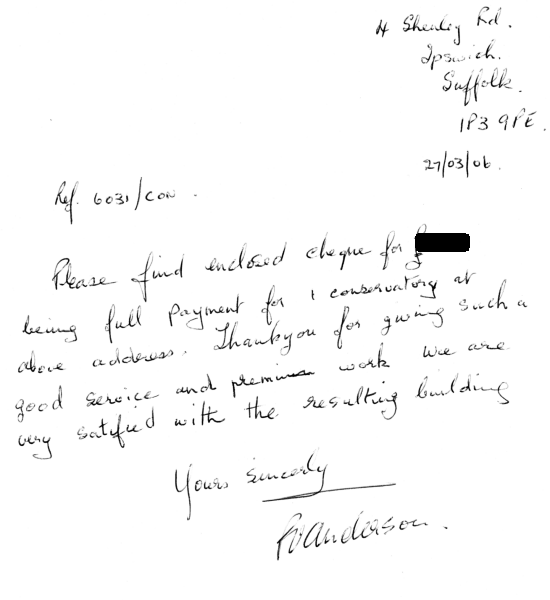 4 Shenley Rd.
Ipswich.
Suffolk.
IP3 9PE.
27/03/06.
Ref. 6031/CON.
Please find enclosed cheque for £
being full payment for 1 conservatory at
above address. Thankyou for giving such a
good service and premium work we are
very satisfied with the resulting building
Yours sincerly
PJ Anderson.